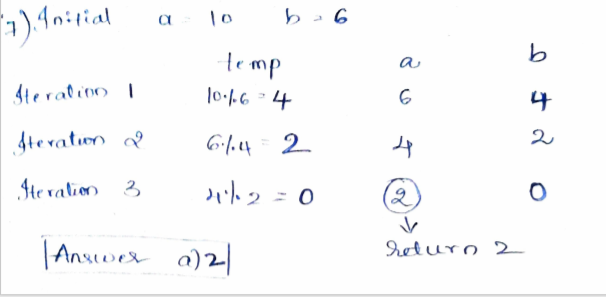 7). Initial a = 10 b = 6
temp a b
Iteration 1 10%6 = 4 6 4
Iteration 2 6%4 = 2 4 2
Iteration 3 4%2 = 0 2 0
↓
|Answer a) 2| return 2